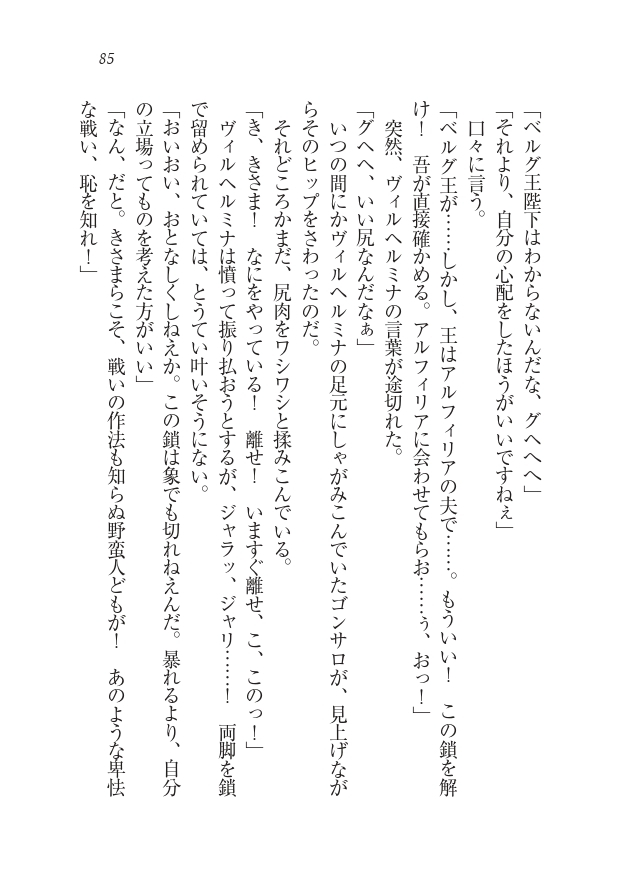 85
「ベルグ王陛下はわからないんだな、グへへへ」
「それより、自分の心配をしたほうがいいですねぇ」
口々に言う。
「ベルグ王が……しかし、王はアルフィリアの夫で……。もういい！　この鎖を解
け！　吾が直接確かめる。アルフィリアに会わせてもらお……ぅ、おっ！」
突然、ヴィルヘルミナの言葉が途切れた。
「グへへ、いい尻なんだなぁ」
いつの間にかヴィルヘルミナの足元にしゃがみこんでいたゴンサロが、見上げなが
らそのヒップをさわったのだ。
それどころかまだ、尻肉をワシワシと揉みこんでいる。
「き、きさま！　なにをやっている！　離せ！　いますぐ離せ、こ、このっ！」
ヴィルヘルミナは憤って振り払おうとするが、ジャラッ、ジャリ……！　両脚を鎖
で留められていては、とうてい叶いそうにない。
「おいおい、おとなしくしねえか。この鎖は象でも切れねえんだ。暴れるより、自分
の立場ってものを考えた方がいい」
「なん、だと。きさまらこそ、戦いの作法も知らぬ野蛮人どもが！　あのような卑怯
な戦い、恥を知れ！」